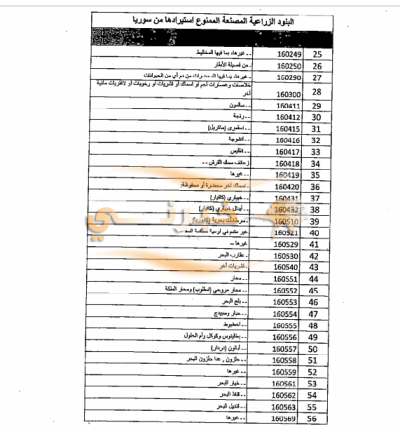 البنود الزراعية المصنعة الممنوع استيرادها من سوريا
25 160249 - - غيرها، بما فيها المخاليط
26 160250 - من فصيلة الأبقار
27 160290 - غيرها، بما فيها من دم أي من الحيوانات
28 160300 خلاصات وعصارات لحم أو أسماك أو قشريات أو رخويات أو لافقريات مائية أخر
29 160411 - - سالمون
30 160412 - - رنجة
31 160415 - - اسقمري (ماكريل)
32 160416 - - انشوجة
33 160417 - - انقليس
34 160418 - - زعانف سمك القرش
35 160419 - - غيرها
36 160420 - أسماك أخر محضرة أو محفوظة
37 160431 - - خبياري (كافيار)
38 160432 - - أبدال خبياري (كافيار)
39 160510
40 160521 غير
41 160529 - - غيرها
42 160530 - عقارب البحر
43 160540 - قشريات أخر
44 160551 - - محار
45 160552 - - محار مروحي (اسقلوب) ومحار الملكة
46 160553 - - بلح البحر
47 160554 - - حبار وسبيدج
48 160555 - - أخطبوط
49 160556 - - بطلينوس وكوكل وأم الخلول
50 160557 - - أباتون (مردار)
51 160558 - - حلزون، عدا حلزون البحر
52 160559 - - غيرها
53 160561 - - خيار البحر
54 160562 - - قنفذ البحر
55 160563 - - قنديل البحر
56 160569 - - غيرها